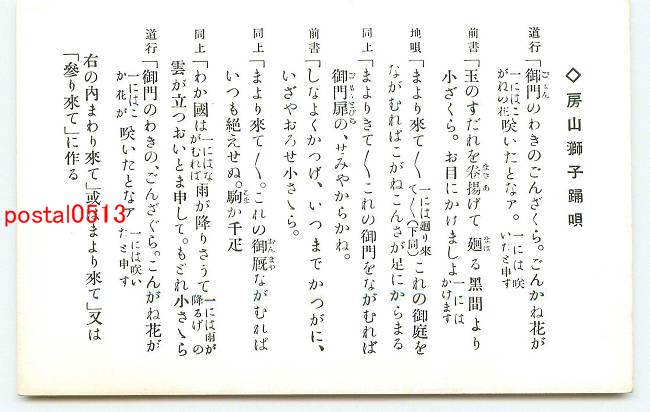 ◇房山獅子踊唄
道行「御門のわきのごんざくら。ごんかね花が
一にはこがねの花 咲いたとなア。一には咲いたと申す
前書「玉のすだれを㳟揚げて 廻る黑間より
小ざくら。お目にかけましよ 一にはかけます
地唄「まより來て〳〵 一には廻り來て〳〵(下同) これの御庭を
ながむればこがねこんさが足にからまる
同上「まよりきて〳〵これの御門をながむれば
御門扉の、せみやからかね。
前書「しなよくかつげ、いつまでかつがに、
いざやおろせ小さゝら。
同上「まより來て〳〵。これの御厩ながむれば
いつも絶えせぬ。駒か千疋
同上「わか國は 一にはながむれば 雨が降りさうて 一には雨が降るげの
雲が立つおいとま申して。もどれ小さゝら
道行「御門のわきの、ごんざくら。こんがね花が
一にはこか花が 咲いたとなア 一には咲いたと申す
右の內まわり來て」或はまより來て」又は
「參り來て」に作る
postal0513